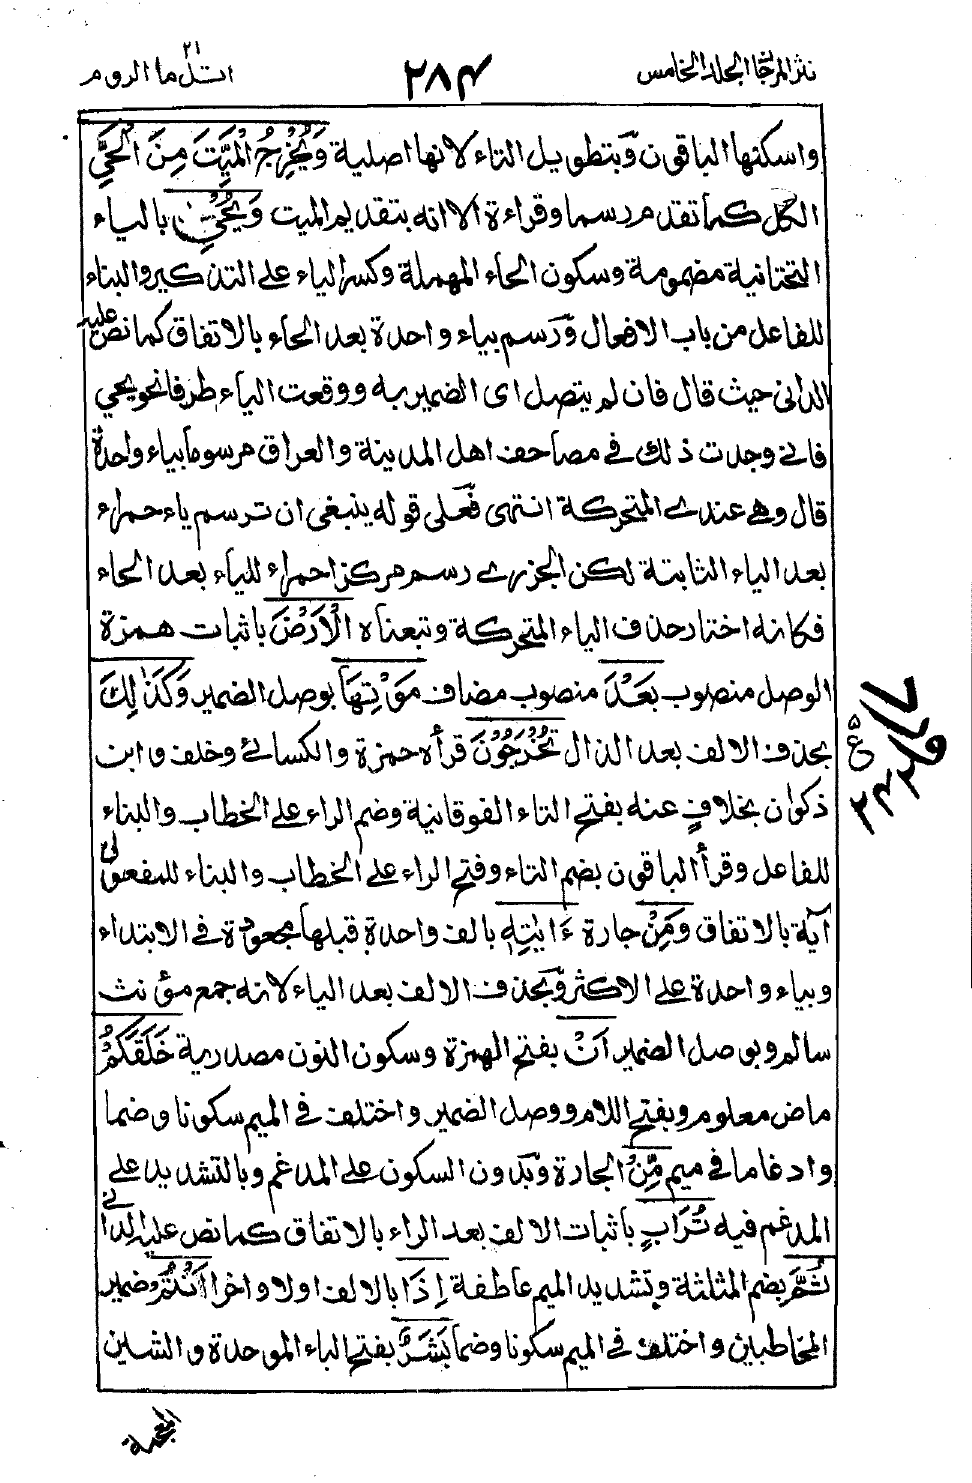 نثر المرجان المجلد الخامس
٢٨٤
٢١
اتل ما الروم
واسكنها الباقون وبتطويل التاء لانها اصلية وَيُخْرِجُ الْمَيِّتَ مِنَ الْحَيِّ
الكل كما تقدم رسما وقراءة الا انه بتقديم الميت وَيُحْيِ بالياء
التحتانية مضمومة وسكون الحاء المهملة وكسر الياء على التذكير والبناء
للفاعل من باب الافعال ورسم بياء واحدة بعد الحاء بالاتفاق كما نص عليه
الدانى حيث قال فان لم يتصل اى الضمير به ووقعت الياء طرفا نحو يحي
فانى وجدت ذلك فى مصاحف اهل المدينة والعراق مرسوما بياء واحدة
قال وهى عندى المتحركة انتهى فعلى قوله ينبغى ان ترسم ياء حمراء
بعد الياء الثابتة لكن الجزرى رسم مركزا حمراء للياء بعد الحاء
فكانه اختار حذف الياء المتحركة وتبعناه الْاَرْضَ باثبات همزة
الوصل منصوب بَعْدَ منصوب مضاف مَوْتِهَا بوصل الضمير وَكَذٰلِكَ
بحذف الالف بعد الذال تُخْرَجُوْنَ قرأه حمزة والكسائى وخلف وابن
ذكوان بخلاف عنه بفتح التاء الفوقانية وضم الراء على الخطاب والبناء
للفاعل وقرأ الباقون بضم التاء وفتح الراء على الخطاب والبناء للمفعول
آية بالاتفاق وَمِنْ جارة ءَايٰتِهٖ بالف واحدة قبلها مجعودة فى الابتداء
وبياء واحدة على الاكثر وبحذف الالف بعد الياء لانه جمع مؤنث
سالم وبوصل الضمير اَنْ بفتح الهمزة وسكون النون مصدرية خَلَقَكُمْ
ماض معلوم وبفتح اللام ووصل الضمير واختلف فى الميم سكونا وضما
وادغاما فى ميم مِّنْ الجارة وبدون السكون على المدغم وبالتشديد على
المدغم فيه تُرَابٍ باثبات الالف بعد الراء بالاتفاق كما نص عليه الدانى
ثُمَّ بضم المثلثة وتشديد الميم عاطفة اِذَا بالالف اولا واخرا اَنْتُمْ وضمير
المخاطبين واختلف فى الميم سكونا وضما بَشَرٌ بفتح الباء الموحدة والشين
المعجمة